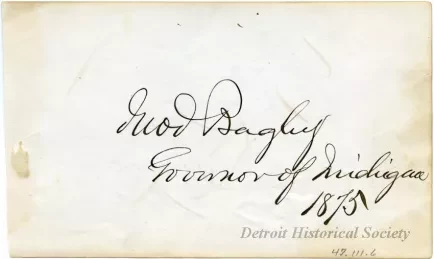 Jno J Bagley
Governor of Michigan
1875
Detroit Historical Society
47.111.6